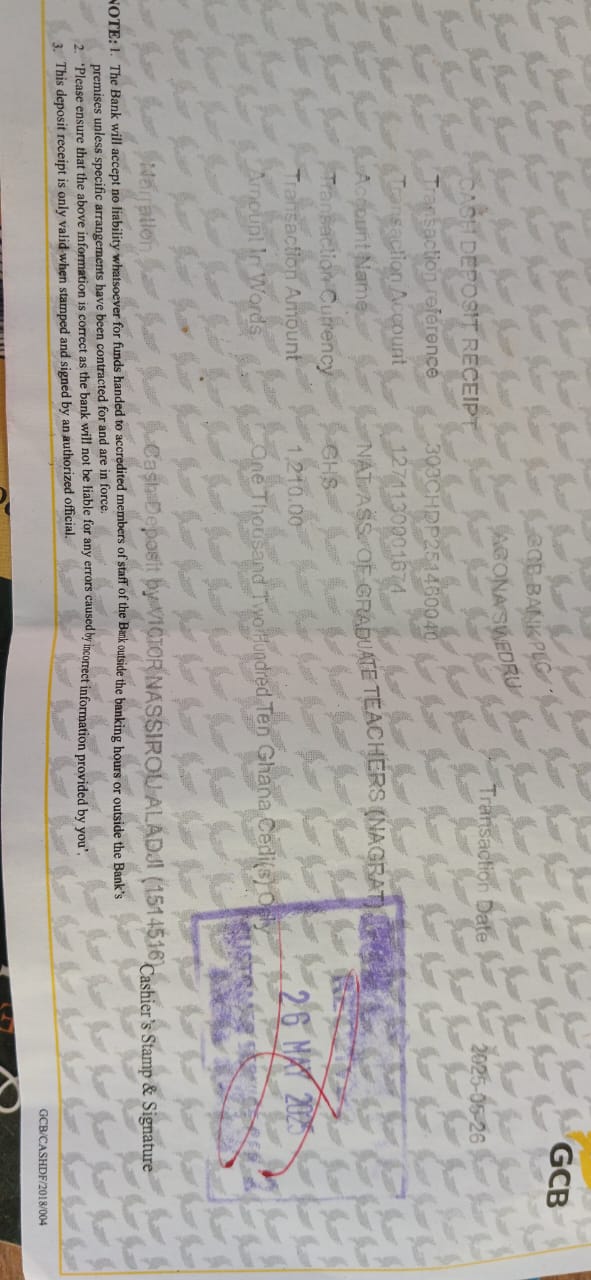 GCB
GCB BANK PLC
AGONA SWEDRU
Transaction Date 2025-05-26
CASH DEPOSIT RECEIPT
Transaction reference 303CHDP251460040
Transaction Account 1271130001674
Account Name NAT ASS. OF GRADUATE TEACHERS (NAGRAT)
Transaction Currency GHS
Transaction Amount 1,210.00
Amount In Words One Thousand Two Hundred Ten Ghana Cedi(s) Only
26 MAY 2025
Narration Cash Deposit by VICTOR NASSIROU ALADJI (1514516)
Cashier's Stamp & Signature
NOTE: 1. The Bank will accept no liability whatsoever for funds handed to accredited members of staff of the Bank outside the banking hours or outside the Bank's
premises unless specific arrangements have been contracted for and are in force.
2. 'Please ensure that the above information is correct as the bank will not be liable for any errors caused by incorrect information provided by you'.
3. This deposit receipt is only valid when stamped and signed by an authorized official.
GCB/CASHDF/2018/004